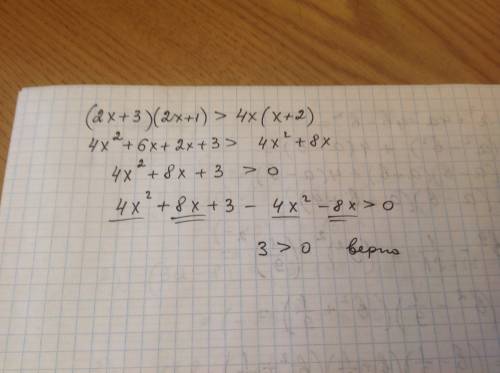 (2x+3)(2x+1) > 4x(x+2)
4x²+6x+2x+3> 4x²+8x
4x²+8x+3 >0
4x²+8x+3-4x²-8x>0
3>0 верно